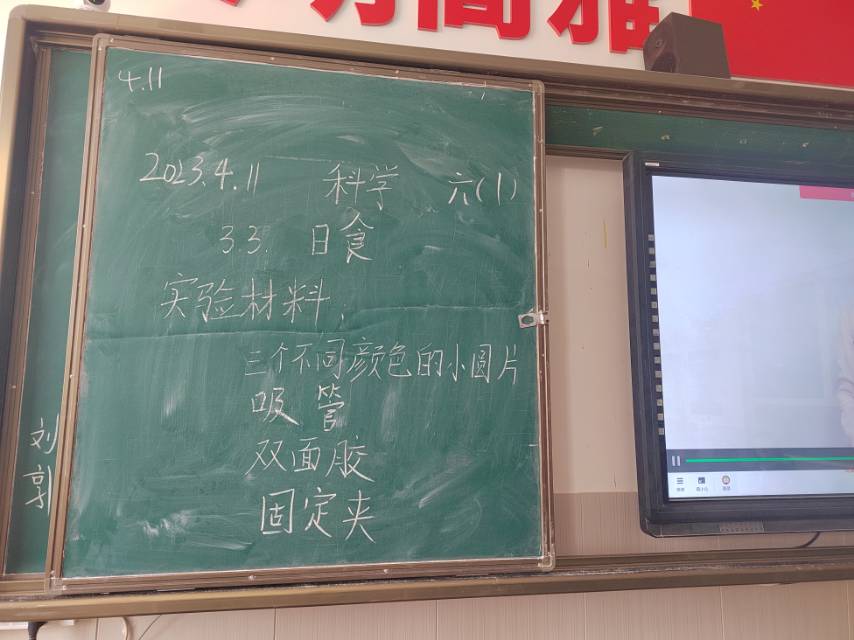 4.11
2023.4.11 科学 六(1)
3.3. 日食
实验材料:
三个不同颜色的小圆片
吸管
双面胶
固定夹
刘
郭
高雅